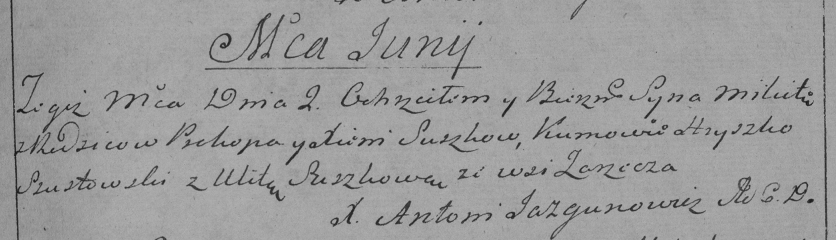 Mca Junij
Tegiż Mca Dnia 2. Ochrzciłem y Bierzm Syna Mikitę
z Rodzicow Prokopa y Xieni Suszkow, Kumowie Hryszko
Szustowski z Ulitą Suszkową ze wsi Zarzecza
X. Antoni Jazgunowicz